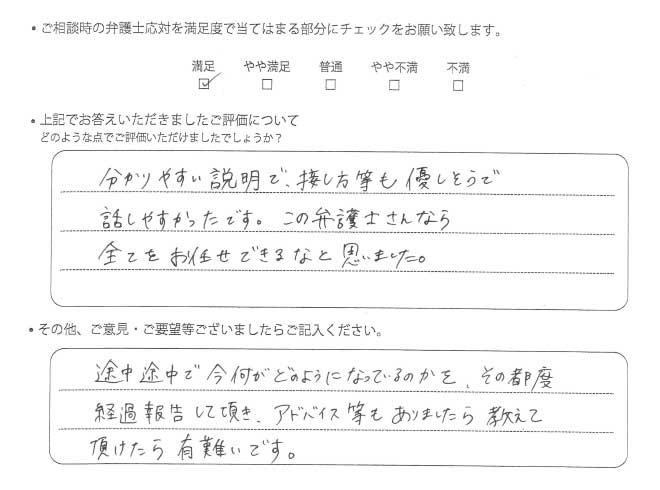 ・ご相談時の弁護士応対を満足度で当てはまる部分にチェックをお願い致します。
満足 やや満足 普通 やや不満 不満
☑ □ □ □ □
・上記でお答えいただきましたご評価について
どのような点でご評価いただけましたでしょうか？
分かりやすい説明で、接し方等も優しそうで
話しやすかったです。この弁護士さんなら
全てをお任せできるなと思いました。
・その他、ご意見・ご要望等ございましたらご記入ください。
途中途中で今何がどのようになっているのかを、その都度
経過報告して頂き、アドバイス等もありましたら教えて
頂けたら有難いです。